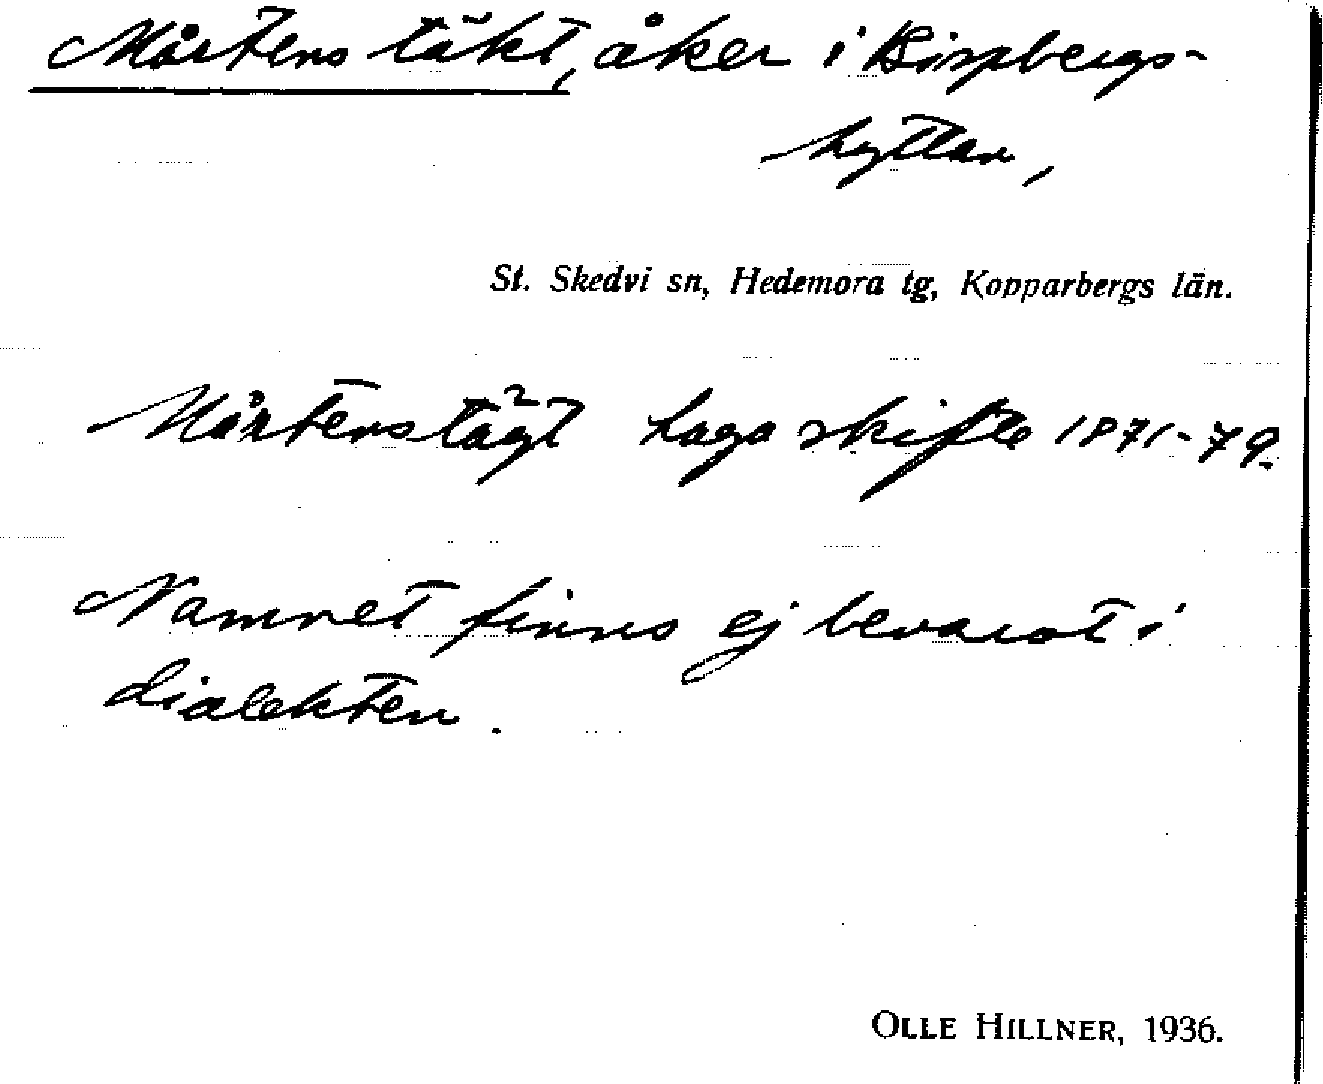 Mårtens täkt, åker i Bispbergs-
hyttan,
St. Skedvi sn, Hedemora tg, Kopparbergs län.
Mårtenstägt Laga skifte 1871-79.
Namnet finns ej bevarat i
dialekten.
OLLE HILLNER, 1936.